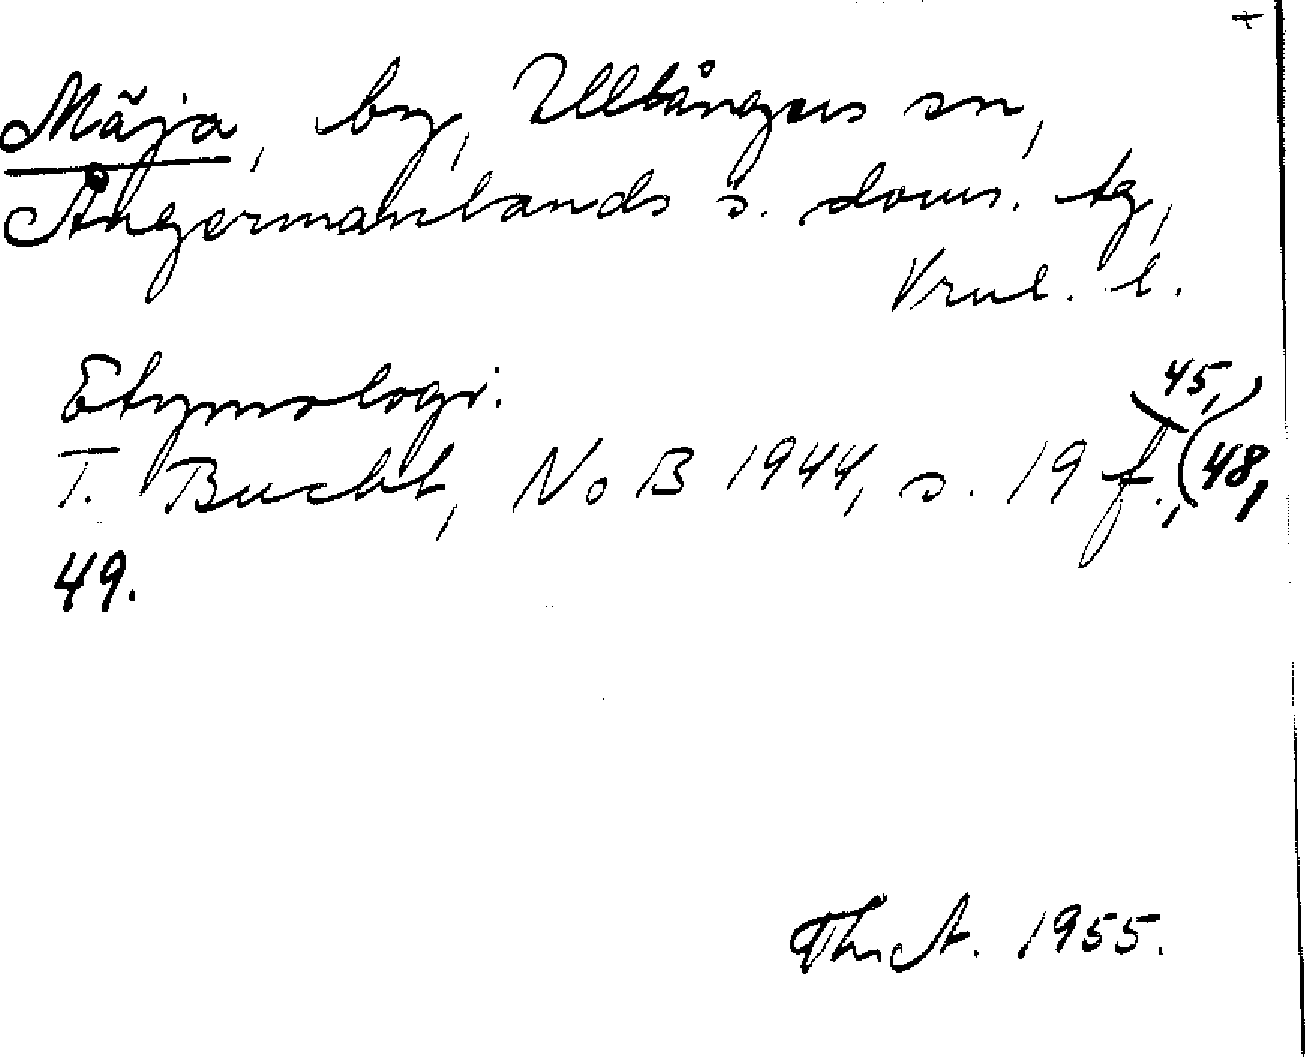 Mäja, by, Ullångers sn,
Ångermanlands s. doms. tg,
Vnrl. l.
Etymologi:
T. Bucht, NoB 1944, s. 19 f., 45, 48,
49.
Th. A. 1955.